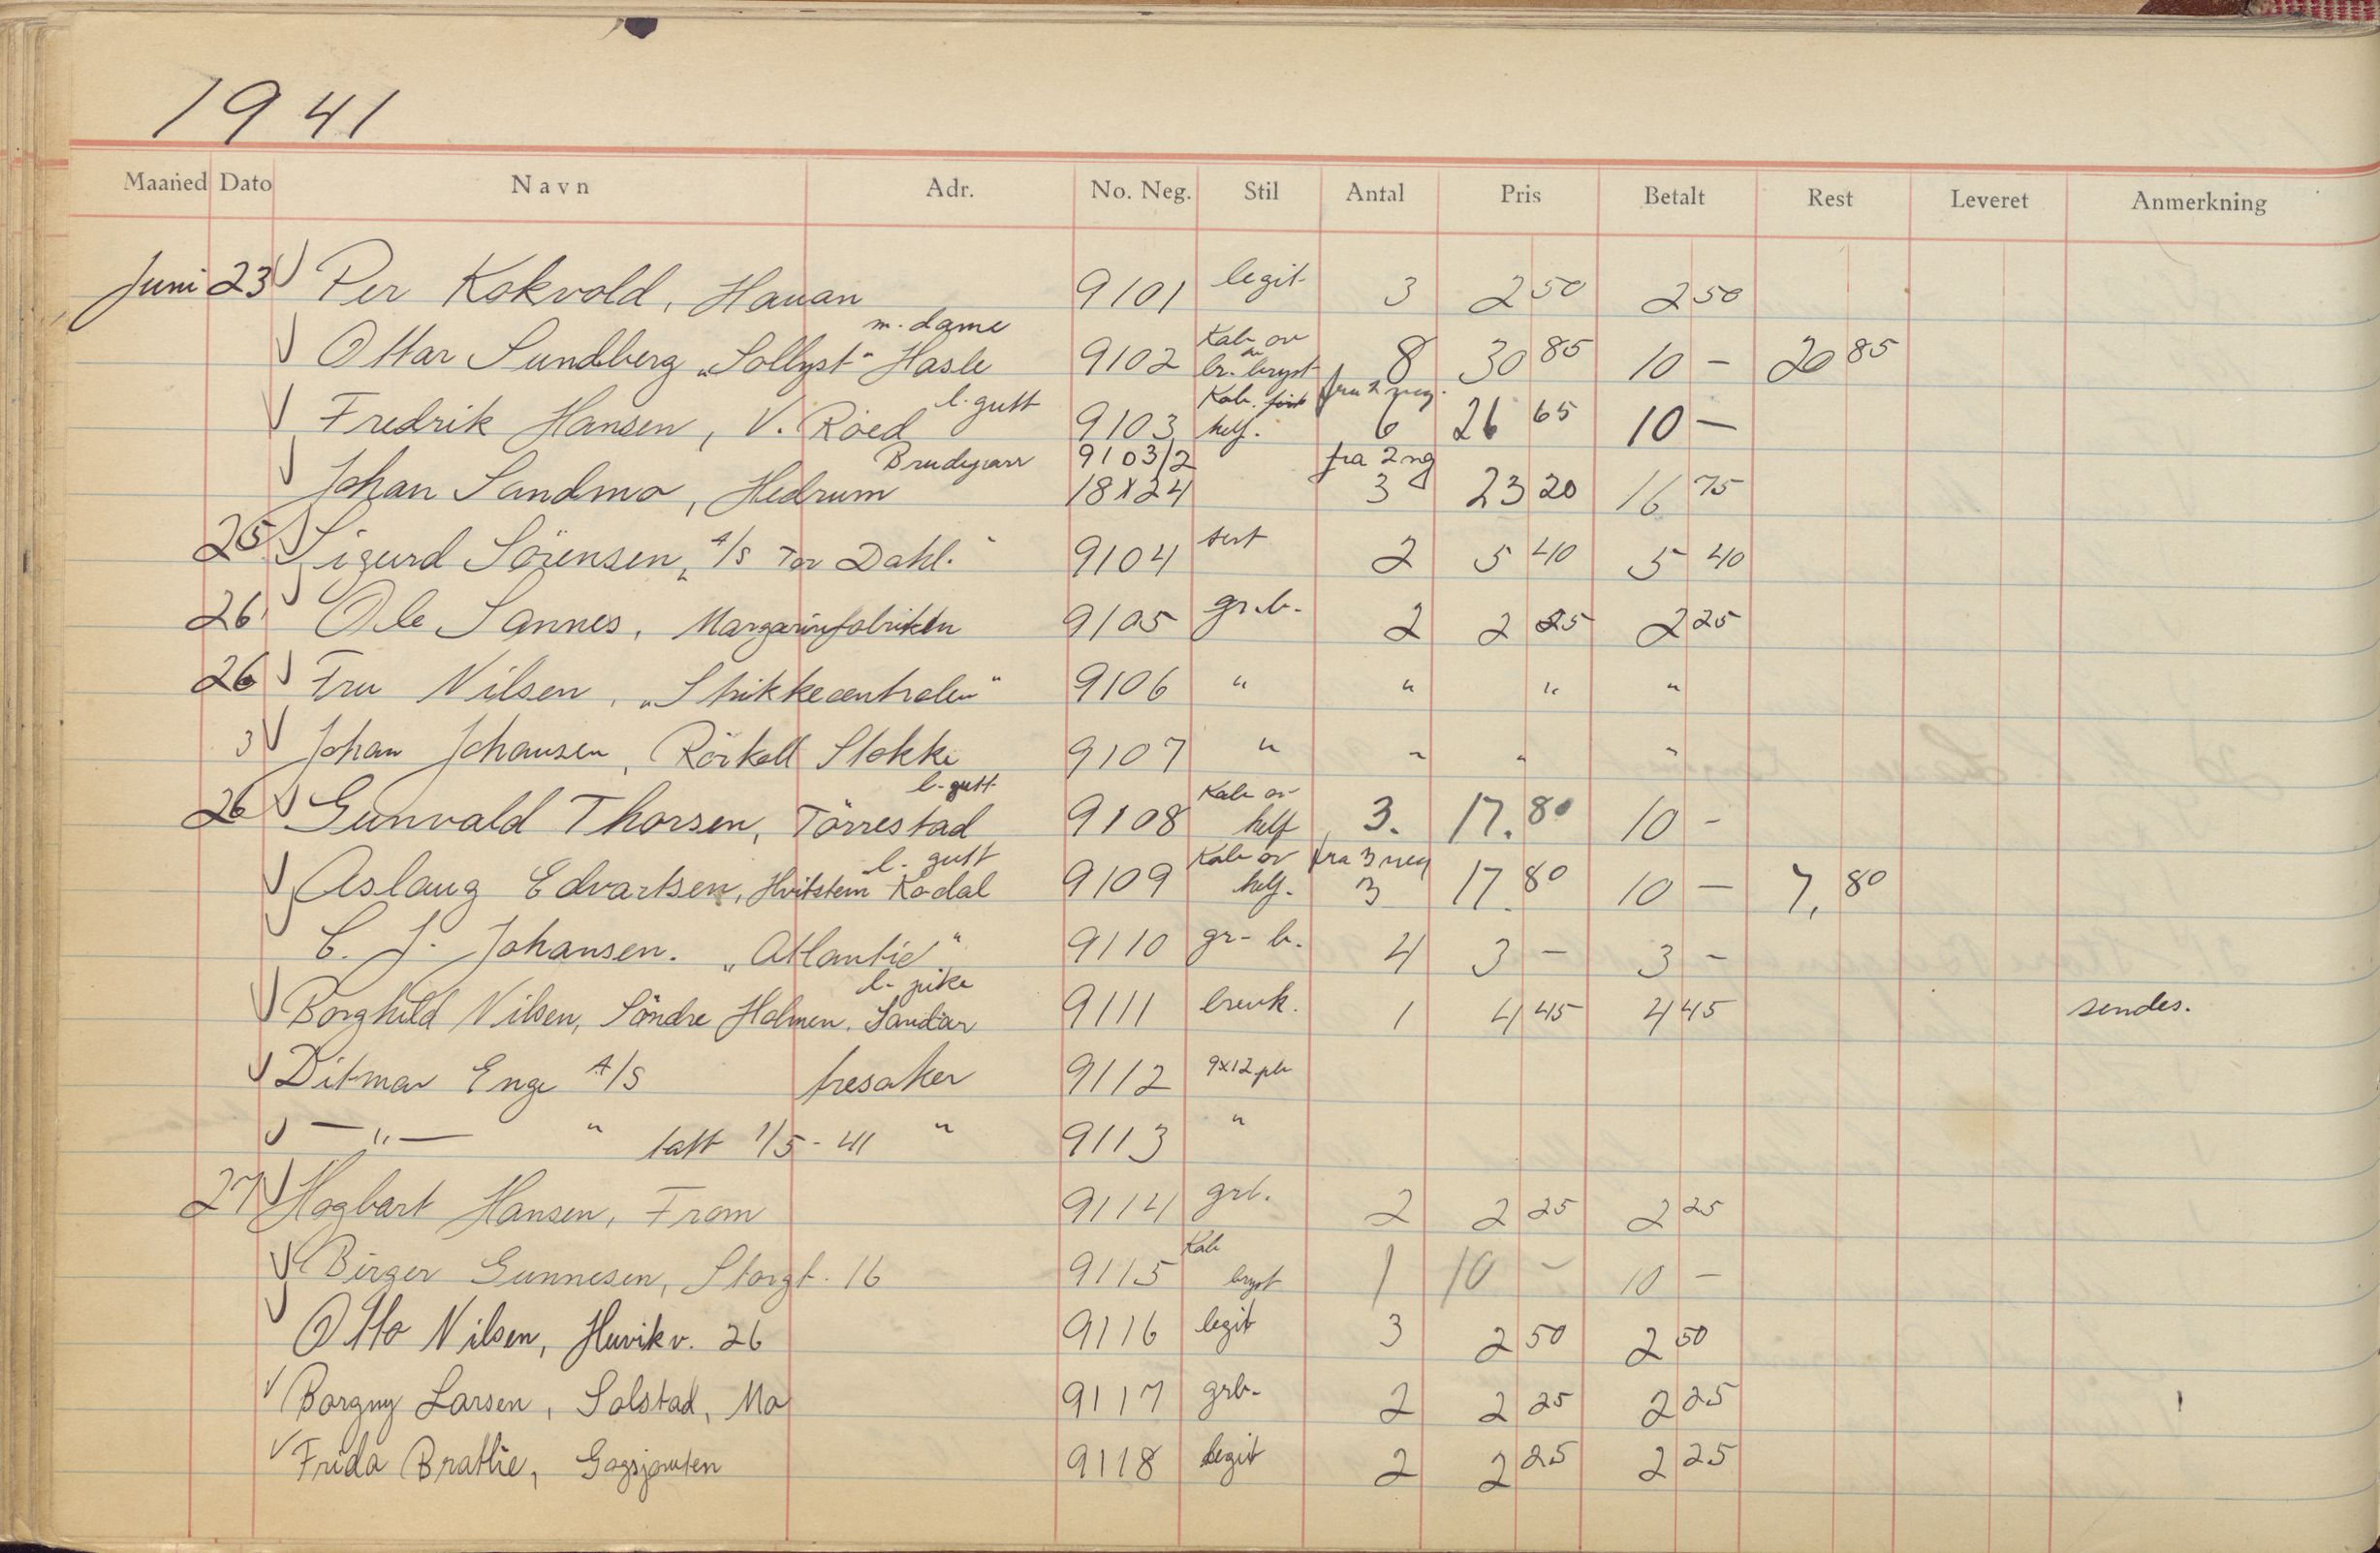 1941
Maaned Dato Navn Adr. No. Neg. Stil Antal Pris Betalt Rest Leveret Anmerkning
Juni 23 Per Kokvold, Hauan 9101 legit 3 2 50 2 50
m. dame Kab. av
Ottar Sundberg „Sollyst" Hasle 9102 br. bryst 8 30 85 10 - 20 85
l. gutt Kab. fra 2 neg.
Fredrik Hansen, V. Röed 9103 helf. 6 26 65 10 -
Brudepar 9103/2 fra 2 ng
Johan Sandmo, Hedrum 18x24 3 23 20 16 75
25 Sigurd Sörensen, „A/S Tor Dahl." 9104 sert 2 5 40 5 40
26 Ole Sannes, Margarinfabrikken 9105 gr.b. 2 2 25 2 25
26 Fru Nilsen, „Strikkecentralen" 9106 " " " "
3 Johan Johansen, Rörkoll Stokke 9107 " " " "
l. gutt Kab av
26 Gunvald Thorsen, Törrestad 9108 helf 3. 17.80 10 -
l. gutt Kab av fra 3 neg
Aslaug Edvartsen, Hvitstein Kodal 9109 helf. 3 17.80 10 - 7,80
C. J. Johansen. „Atlantic" 9110 gr-b. 4 3 - 3 -
l. pike
Borghild Nilsen, Söndre Holmen. Sandar 9111 brevk. 1 4 45 4 45 sendes.
Ditmar Enge A/S fresaker 9112 9x12 pl
- " - " tatt 1/5-41 " 9113 "
27 Hagbart Hansen, Fram 9114 grb. 2 2 25 2 25
Kab
Birger Gunnesen, Storgt. 16 9115 bryst 1 10 - 10 -
Otto Nilsen, Huvikv. 26 9116 legit 3 2 50 2 50
Borgny Larsen, Solstad, Mo 9117 grb. 2 2 25 2 25
Frida Bratlie, 9118 legit 2 2 25 2 25